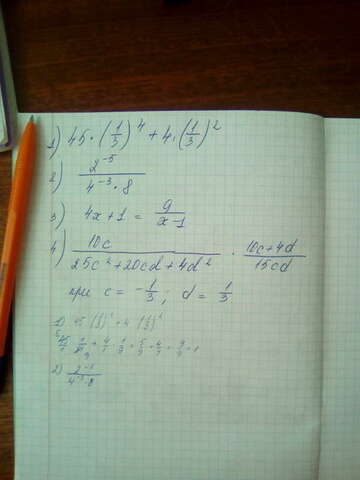 1) 45 · (1/3)^4 + 4 · (1/3)^2
2) 2^-5 / 4^-3 · 8
3) 4x + 1 = 9 / x-1
4) 10c / 25c^2 + 20cd + 4d^2 · 10c + 4d / 15cd
при c = -1/3 ; d = 1/3
2) 2^-5 / 4^-3 · 8